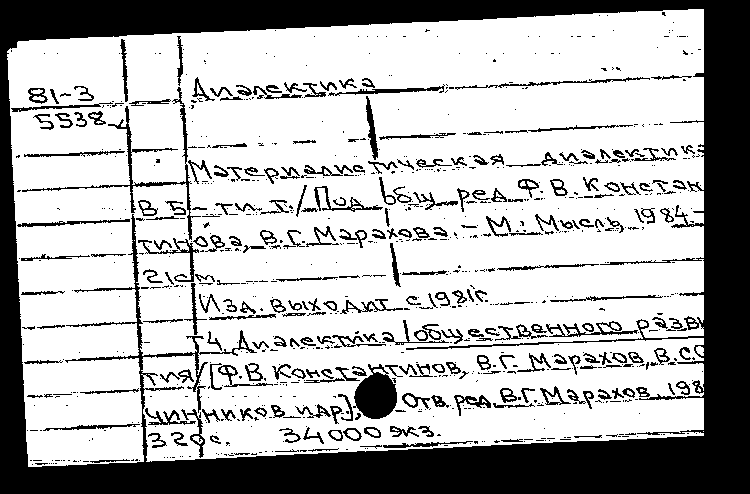 81-3
5538
Диалектика
Материалистическая диалектика
В 5-ти т./Под общ ред Ф.В. Констан
тинова, В.Г. Марахова. - М.: Мысль, 1984 -
21см.
Изд. выходит с 1981г.
Т4 Диалектика общественного разви
тия/[Ф.В Константинов, В.Г. Марахов, В.СО
чинников и др.]; Отв ред. В.Г. Марахов. 198
320с. 34000 экз.